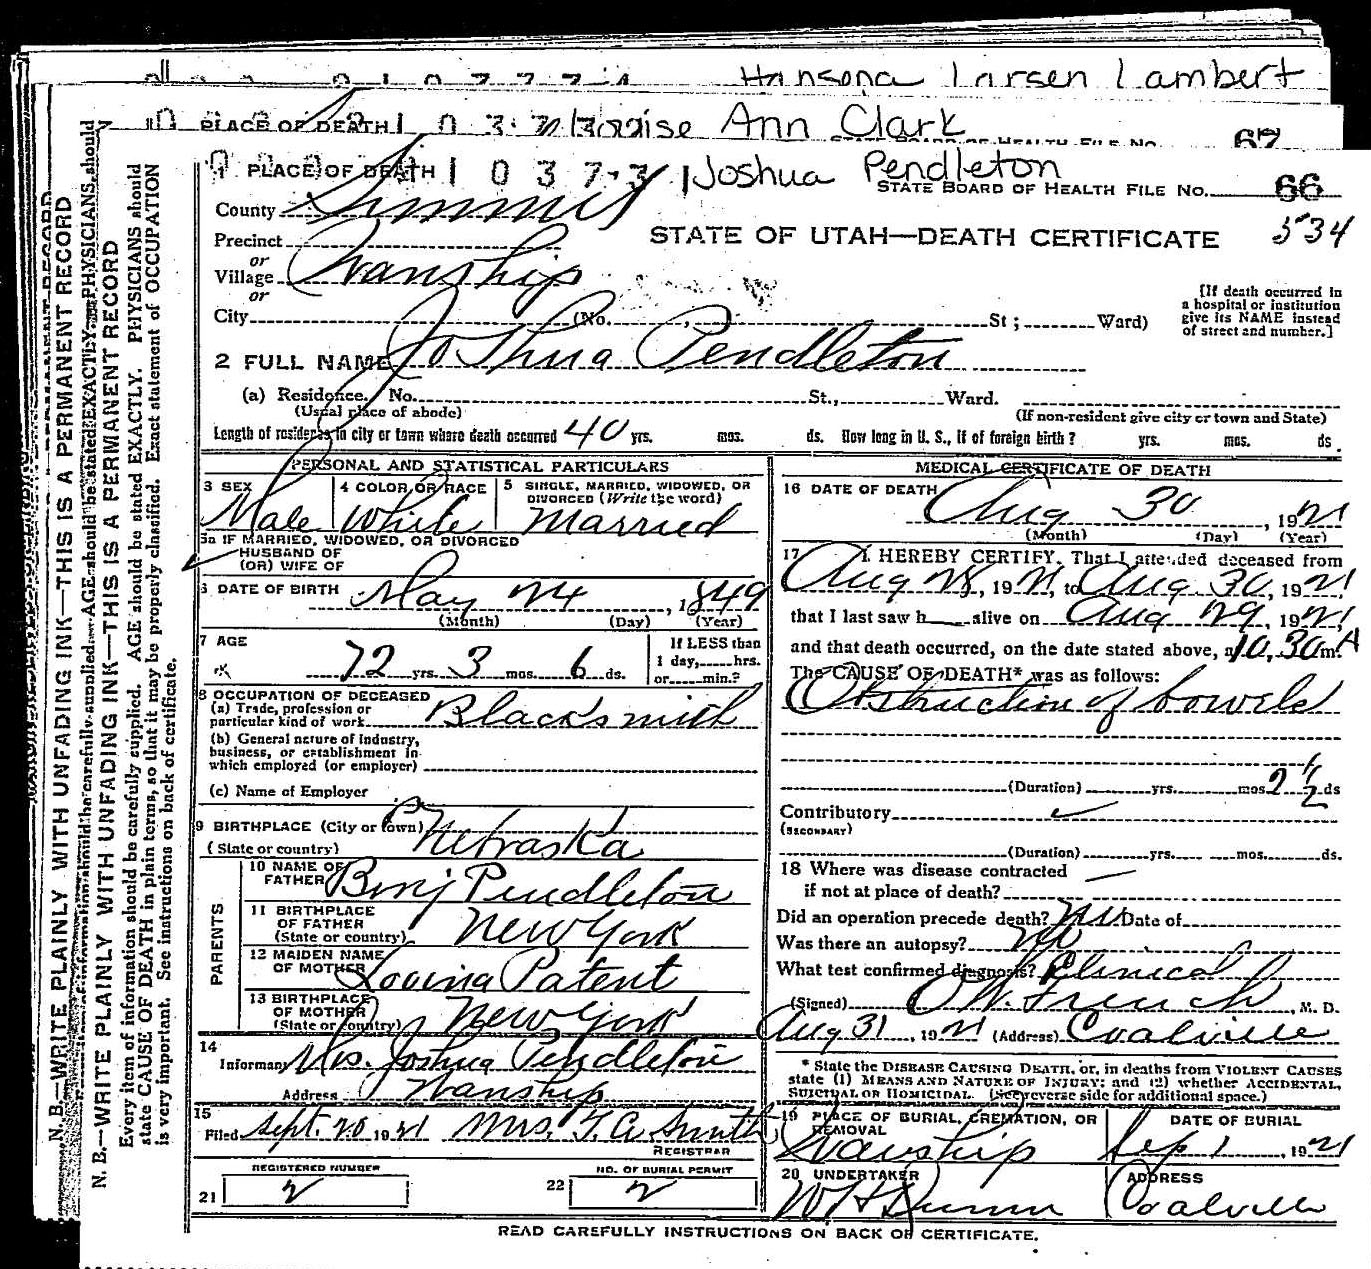 Hansena Larsen Lambert
PLACE OF DEATH 1037 Louise Ann Clark
67
1 PLACE OF DEATH 1 0 3 7 3 Joshua Pendleton
STATE BOARD OF HEALTH FILE NO. 66
County Summit
534
Precinct
STATE OF UTAH—DEATH CERTIFICATE
or
Village Wanship
or
City (No. , St ; Ward)
[If death occurred in
a hospital or institution
give its NAME instead
of street and number.]
2 FULL NAME Joshua Pendleton
(a) Residence. No. St., Ward.
(Usual place of abode) (If non-resident give city or town and State)
Length of residence in city or town where death occurred 40 yrs. mos. ds. How long in U. S., if of foreign birth? yrs. mos. ds
PERSONAL AND STATISTICAL PARTICULARS
3 SEX 4 COLOR OR RACE 5 SINGLE, MARRIED, WIDOWED, OR
DIVORCED (Write the word)
Male White Married
5a IF MARRIED, WIDOWED, OR DIVORCED
HUSBAND OF
(OR) WIFE OF
6 DATE OF BIRTH May 24, 1849
(Month) (Day) (Year)
7 AGE If LESS than
72 yrs. 3 mos. 6 ds. 1 day, hrs.
or min.?
8 OCCUPATION OF DECEASED
(a) Trade, profession or
particular kind of work Blacksmith
(b) General nature of industry,
business, or establishment in
which employed (or employer)
(c) Name of Employer
9 BIRTHPLACE (City or town)
(State or country) Nebraska
PARENTS
10 NAME OF
FATHER Benj Pendleton
11 BIRTHPLACE
OF FATHER
(State or country) New York
12 MAIDEN NAME
OF MOTHER Lovina Patent
13 BIRTHPLACE
OF MOTHER
(State or country) New York
14
Informant Mrs. Joshua Pendleton
Address Wanship
15
Filed Sept. 20 1921 Mrs. T. A. Smith
REGISTRAR
REGISTERED NUMBER NO. OF BURIAL PERMIT
21 2 22 2
MEDICAL CERTIFICATE OF DEATH
16 DATE OF DEATH
Aug 30, 1921
(Month) (Day) (Year)
17 I HEREBY CERTIFY, That I attended deceased from
Aug 28, 1921, to Aug 30, 1921,
that I last saw h alive on Aug 29, 1921,
and that death occurred, on the date stated above, at 10.30 A m.
The CAUSE OF DEATH* was as follows:
Obstruction of bowels
(Duration) yrs. mos. 2 1/2 ds
Contributory
(SECONDARY)
(Duration) yrs. mos. ds.
18 Where was disease contracted
if not at place of death?
Did an operation precede death? No Date of
Was there an autopsy? No
What test confirmed diagnosis? Clinical
(Signed) O W. French, M. D.
Aug 31, 1921 (Address) Coalville
* State the DISEASE CAUSING DEATH, or, in deaths from VIOLENT CAUSES
state (1) MEANS AND NATURE OF INJURY; and (2) whether ACCIDENTAL,
SUICIDAL OR HOMICIDAL. (See reverse side for additional space.)
19 PLACE OF BURIAL, CREMATION, OR
REMOVAL DATE OF BURIAL
Wanship Sep 1, 1921
20 UNDERTAKER ADDRESS
Coalville
READ CAREFULLY INSTRUCTIONS ON BACK OF CERTIFICATE.
N. B.—WRITE PLAINLY WITH UNFADING INK—THIS IS A PERMANENT RECORD
N. B.—WRITE PLAINLY WITH UNFADING INK—THIS IS A PERMANENT RECORD
Every item of information should be carefully supplied. AGE should be stated EXACTLY. PHYSICIANS should
state CAUSE OF DEATH in plain terms, so that it may be properly classified. Exact statement of OCCUPATION
is very important. See instructions on back of certificate.